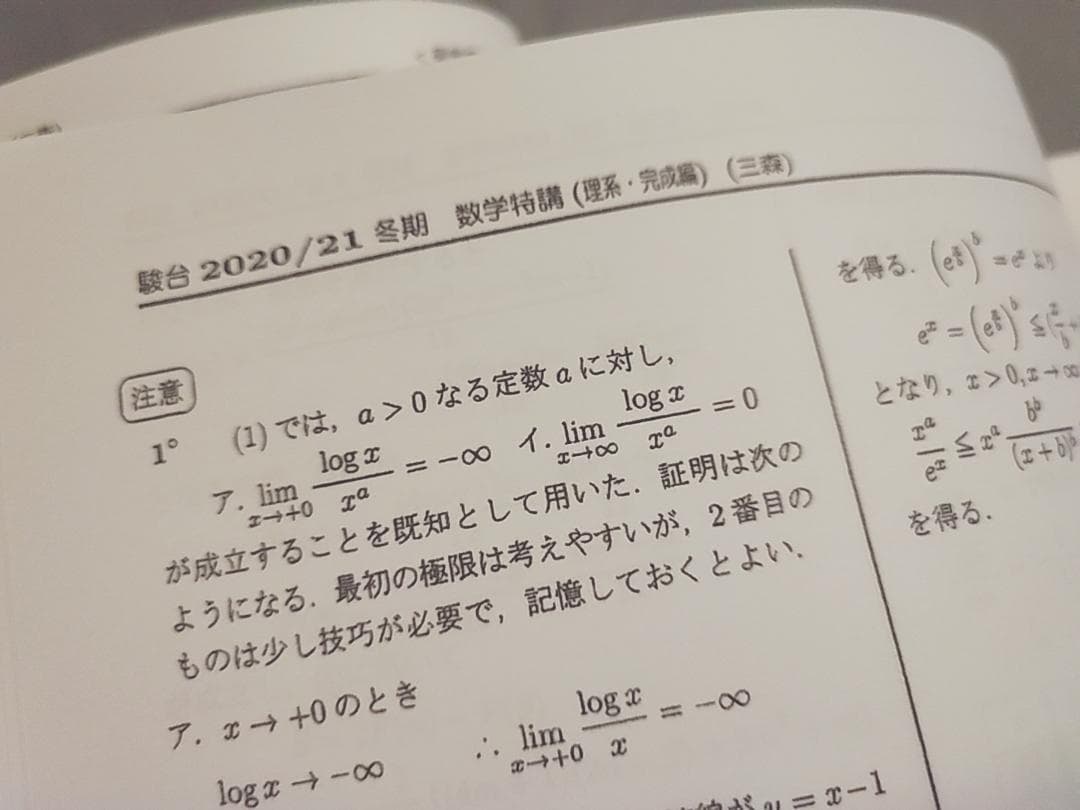 駿台 2020/21 冬期 数学特講 (理系・完成編) (三森)
注意
1° (1) では, a > 0 なる定数 a に対し,
ア. lim_{x→+0} \frac{log x}{x^a} = −∞ イ. lim_{x→∞} \frac{log x}{x^a} = 0
が成立することを既知として用いた. 証明は次の
ようになる. 最初の極限は考えやすいが, 2 番目の
ものは少し技巧が必要で, 記憶しておくとよい.
ア. x → +0 のとき
log x → −∞ ∴ lim_{x→+0} \frac{log x}{x} = −∞
が y = x − 1
を得る. (e^{\frac{x}{b}})^b = e^x より
e^x = (e^{\frac{x}{b}})^b ≧
となり, x > 0, x → ∞
\frac{x^a}{e^x} ≦ x^a \frac{b^b}{(x+b)^b}
を得る.